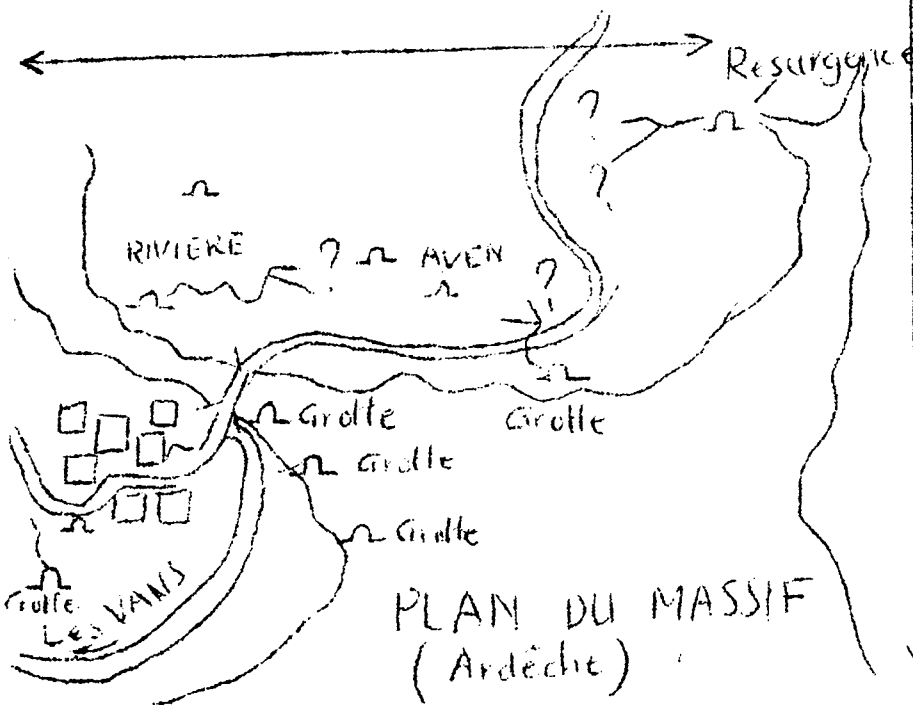 Resurgence
?
?
RIVIERE ? AVEN
?
Grotte Grotte
Grotte
Grotte
Grotte
LES VANS
PLAN DU MASSIF
(Ardêche)